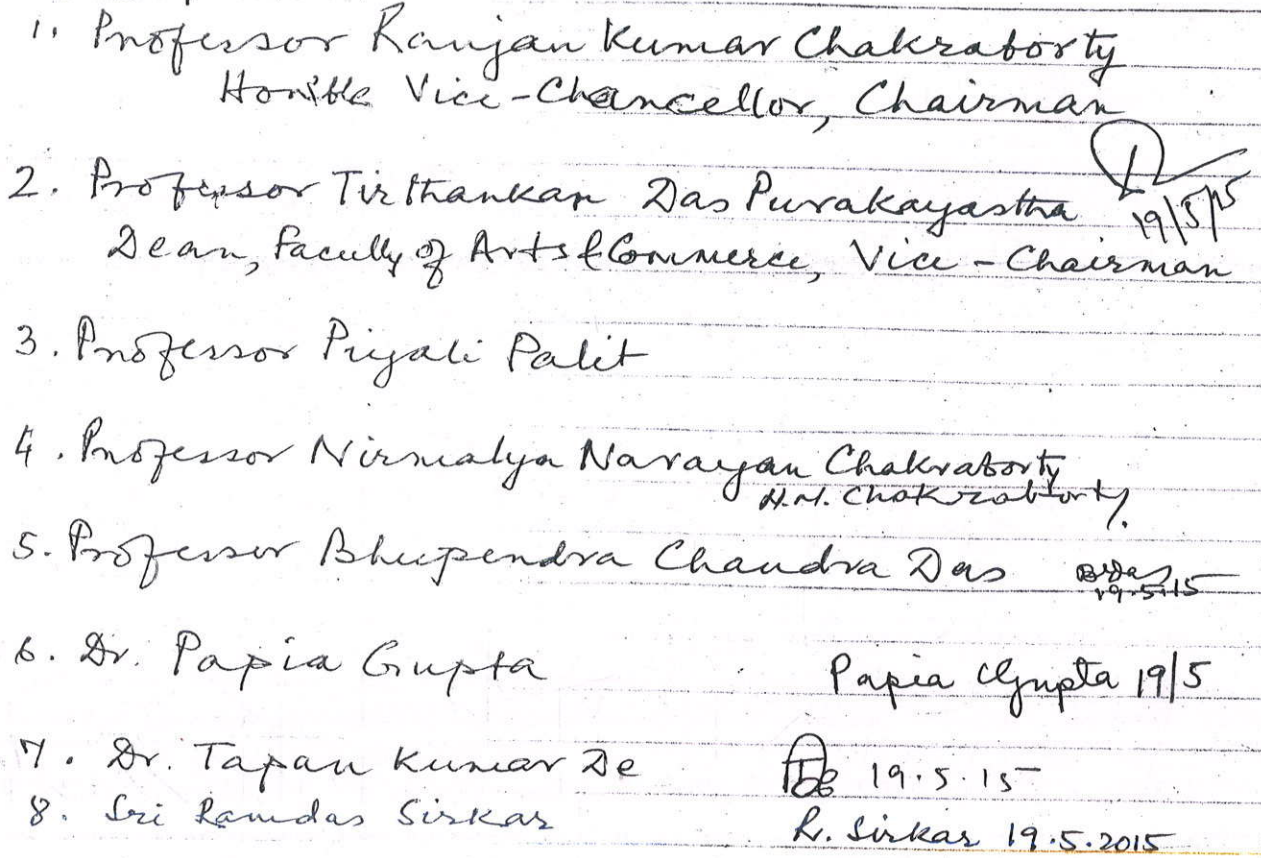 1. Professor Ranjan Kumar Chakraborty
Hon'ble Vice-Chancellor, Chairman
2. Professor Tirthankar Das Purakayastha
19/5/15
Dean, Faculty of Arts & Commerce, Vice-Chairman
3. Professor Piyali Palit
4. Professor Nirmalya Narayan Chakraborty
N.N. Chakraborty.
5. Professor Bhupendra Chandra Das BDas
19.5.15
6. Dr. Papia Gupta Papia Gupta 19/5
7. Dr. Tapan Kumar De 19.5.15
8. Sri Ramdas Sirkar R. Sirkar 19.5.2015